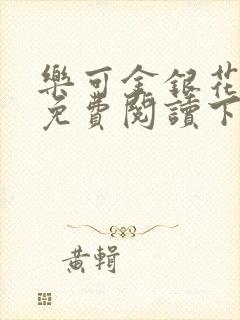 樂可金銀花
免費閱讀下
黃輯